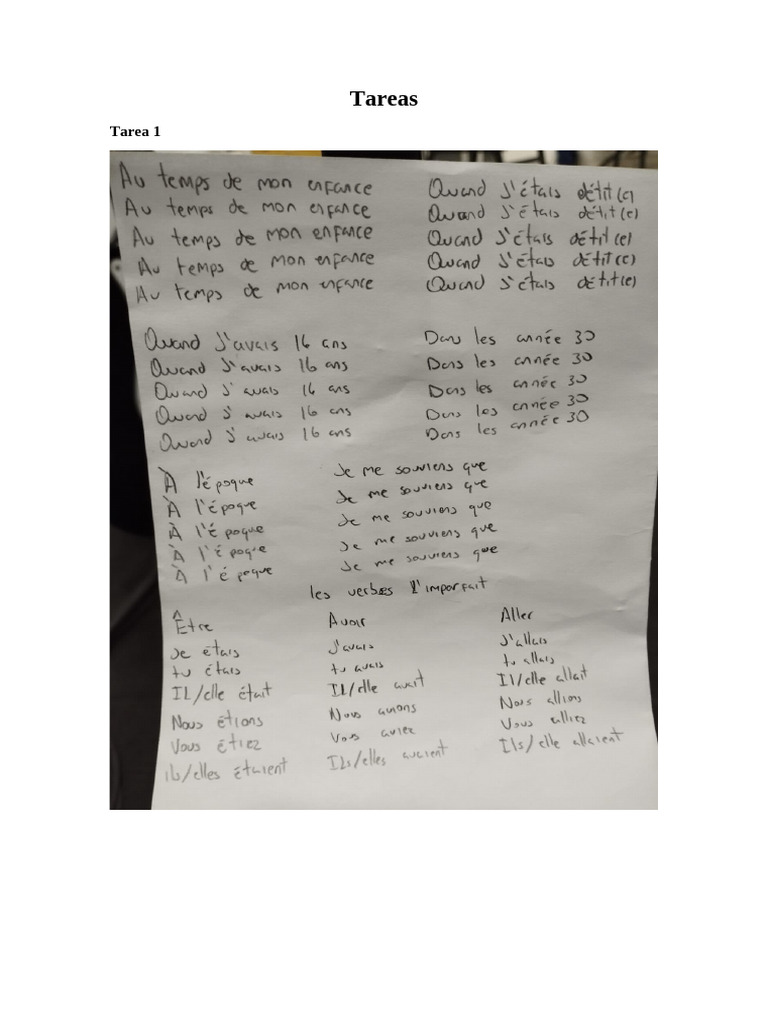 Tareas
Tarea 1
Au temps de mon enfance
Au temps de mon enfance
Au temps de mon enfance
Au temps de mon enfance
Au temps de mon enfance
Quand J'étais détit(e)
Quand J'étais détit(e)
Quand J'étais détit(e)
Quand J'étais détit(e)
Quand J'étais détit(e)
Quand J'avais 16 ans
Quand J'avais 16 ans
Quand J'avais 16 ans
Quand J'avais 16 ans
Quand J'avais 16 ans
Dans les année 30
Dans les année 30
Dans les année 30
Dans les année 30
Dans les année 30
À l'époque
À l'époque
À l'époque
À l'époque
À l'époque
Je me souviens que
Je me souviens que
Je me souviens que
Je me souviens que
Je me souviens que
les verbes l'imparfait
Être
Je étais
tu étais
Il/elle était
Nous étions
Vous étiez
ils/elles étaient
Avoir
J'avais
tu avais
Il/elle avait
Nous avions
Vous aviez
Ils/elles avaient
Aller
J'allais
tu allais
Il/elle allait
Nous allions
Vous alliez
Ils/elle allaient